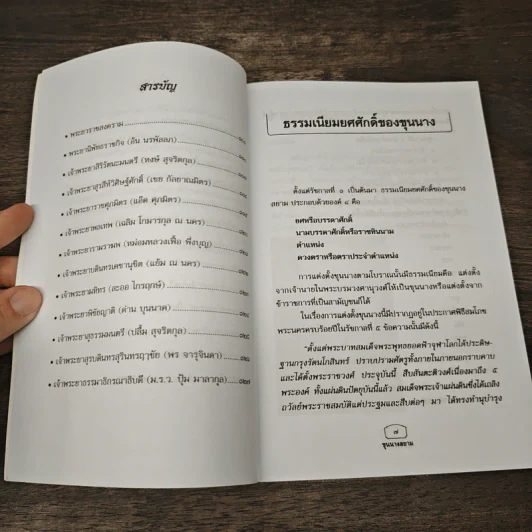 สารบัญ
• พระยาราชสงคราม
• พระยานิพัทธราชกิจ (อ้น นรพัลลภ)
• เจ้าพระยาสิริรัตนะมนตรี (หงษ์ สุจริตกุล)
• เจ้าพระยาสุรสีห์วิสิษฐ์ศักดิ์ (เชย กัลยาณมิตร)
• เจ้าพระยาราชศุภมิตร (แอ๊ด ศุภมิตร)
• เจ้าพระยาพลเทพ (เฉลิม โกมารกุล ณ นคร)
• เจ้าพระยารามราฆพ (หม่อมหลวงเฟื้อ พึ่งบุญ)
• เจ้าพระยาบดินทรเดชานุชิต (แย้ม ณ นคร)
• เจ้าพระยามหิธร (ละออ ไกรฤกษ์)
• เจ้าพระยาพิชัยญาติ (ด่าน บุนนาค)
• เจ้าพระยาสุธรรมมนตรี (ปลื้ม สุจริตกุล)
• เจ้าพระยาสุรบดินทรสุรินทรฤๅชัย (พร จารุจินดา)
• เจ้าพระยาธรรมาธิกรณาธิบดี (ม.ร.ว. ปุ้ม มาลากุล)
ธรรมเนียมยศศักดิ์ของขุนนาง
ตั้งแต่รัชกาลที่ ๑ เป็นต้นมา ธรรมเนียมยศศักดิ์ของขุนนาง
สยาม ประกอบด้วยองค์ ๔ คือ
ยศหรือบรรดาศักดิ์
นามบรรดาศักดิ์หรือราชทินนาม
ตำแหน่ง
ดวงตราหรือตราประจำตำแหน่ง
การแต่งตั้งขุนนางตามโบราณนั้นมีธรรมเนียมคือ แต่งตั้ง
จากเจ้านายในพระบรมวงศานุวงศ์ให้เป็นขุนนางหรือแต่งตั้งจาก
ข้าราชการที่เป็นสามัญชนก็ได้
ในเรื่องการแต่งตั้งขุนนางนี้มีปรากฏอยู่ในประกาศพิธีสมโภช
พระนครครบร้อยปีในรัชกาลที่ ๕ ข้อความนั้นมีดังนี้
"ตั้งแต่พระบาทสมเด็จพระพุทธยอดฟ้าจุฬาโลกได้ประดิษ-
ฐานกรุงรัตนโกสินทร์ ปราบปรามศัตรูทั้งภายในภายนอกราบคาบ
และได้ตั้งพระราชวงศ์ ประจุบันนี้ สืบสันตะติวงศ์เนื่องมาถึง ๕
พระองค์ ทั้งแผ่นดินปัตยุบันนี้แล้ว สมเด็จพระเจ้าแผ่นดินซึ่งได้เถลิง
ถวัลย์พระราชสมบัติแต่ประฐมและสืบต่อๆ มา ได้ทรงทำนุบำรุง
๗
ขุนนางสยาม